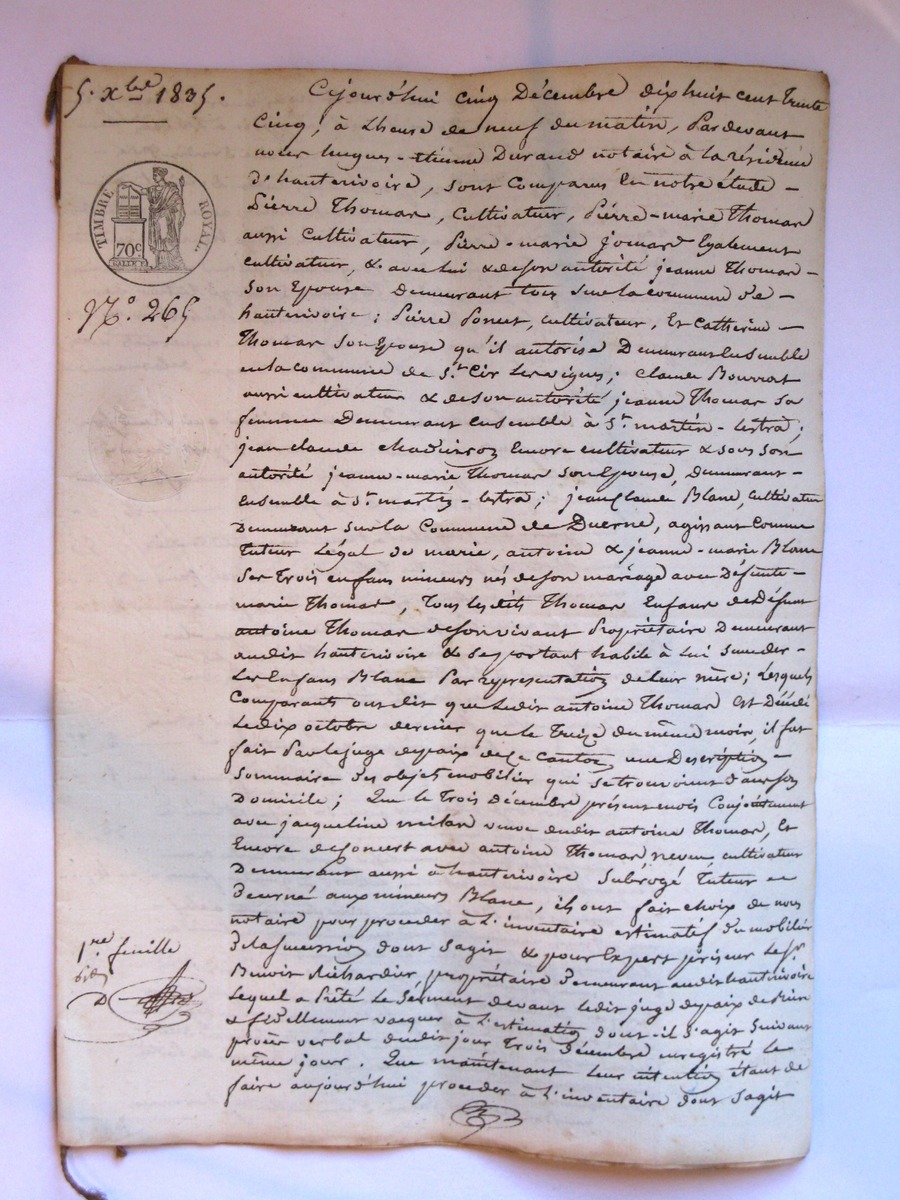 5. Xbre 1835.
TIMBRE ROYAL
70c
No. 265
Cejourd'hui cinq Décembre dix huit cent trente
cinq, à l'heure de neuf du matin, Pardevant
nous hugues-étienne Durand notaire à la résidence
d'hauterivoire, sont comparus en notre étude -
Pierre Thomas, Cultivateur, Pierre-marie Thomas
aussi cultivateur, Pierre-marie jomard Egalement
cultivateur, & avec lui & de son autorité jeanne Thomas -
son Epouse Demeurant tous sur la commune d'e -
hauterivoire; Pierre Poncet, cultivateur, Et Catherine -
Thomas son Epouse qu'il autorise Demeurant Ensemble
en la commune de St. Cir les vignes; claude Bourrat
aussi cultivateur & de son autorité jeanne Thomas sa
femme Demeurant Ensemble à St. martin-lestra;
jean claude Encore cultivateur & sous son
autorité jeanne-marie Thomas son Epouse, Demeurant -
Ensemble à St. martin-lestra; jean Claude Blanc, cultivateur
Demeurant sur la Commune de Duerne, agissant comme
Tuteur Légal de marie, antoine & jeanne-marie Blanc
ses trois enfans mineurs nés de son mariage avec Défunte -
marie Thomas, Tous lesdits Thomas Enfans de Défunt
antoine Thomas de son vivant Propriétaire Demeurant
audit hauterivoire & se portant habile à lui succéder -
Les Enfans Blanc Par représentation de leur mère; Lesquels
Comparants ont dit que Ledit antoine Thomas est Décédé
Le dix octobre dernier que le Treize du même mois, il fut
fait Par le juge de paix de ce canton une Description -
sommaire des objets mobilier qui se trouvoient dans son
Domicile; Que le Trois Décembre présent mois Conjointement
avec jacqueline veuve dudit antoine Thomas, Et
Encore de concert avec antoine Thomas neveu cultivateur
Demeurant aussi à hauterivoire Subrogé Tuteur -
Décerné aux mineurs Blanc, ils ont fait choix de nous
notaire pour procéder à l'inventaire estimatif du mobilier
De la succession dont s'agit & pour Expert priseur Le Sr.
Benoit Richardier propriétaire Demeurant audit hauterivoire
Lequel a Prêté Le Serment devant ledit juge de paix de bien
& fidellement vacquer à l'estimation dont il s'agit suivant
procès verbal dudit jour Trois Décembre enregistré le
même jour. Que maintenant leur intention étant de
faire aujourd'hui proceder à l'inventaire dont s'agit
1re feuille
D